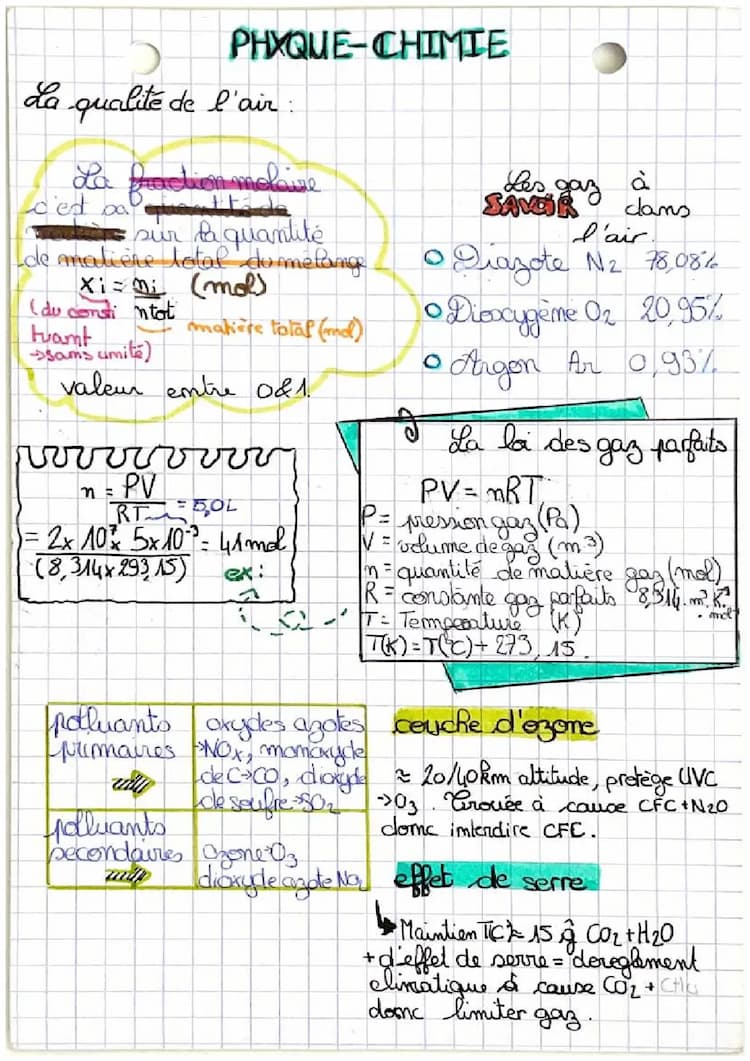 PHXQUE-CHIMIE
La qualité de l'air :
La fraction molaire
c'est sa quantité de
matière sur la quantité
de matière total du mélange
xi = ni (mol)
ntot
(du consti
tuant
→sans unité)
matière total (mol)
valeur entre 0&1.
Les gaz à
SAVOIR dans
l'air.
Diazote N2 78,08%
Dioxygène O2 20,95%
Argon Ar 0,93%
n = PV
RT = 5,0L
= 2x 10⁷x 5x10⁻³ = 41mol
(8,314x293,15)
ex :
La loi des gaz parfaits
PV = nRT
P = pression gaz (Pa)
V = volume de gaz (m³)
n = quantité de matière gaz (mol)
R = constante gaz parfaits 8,314.m³.K⁻¹
. mol
T = Température (K)
T(K) = T(°C) + 273, 15.
polluants
primaires
oxydes azotes
→NOx, monoxyde
de C→CO, dioxyde
de soufre→SO2
polluants
secondaires
Ozone→O3
dioxyde azote NO2
couche d'ozone
≈ 20/40km altitude, protège UVC
→O3. Trouée à cause CFC+N2O
donc interdire CFC.
effet de serre
↳ Maintien T(C)≈ 15 CO2+H2O
+ d'effet de serre = dereglement
climatique à cause CO2 + CH4
donc limiter gaz.